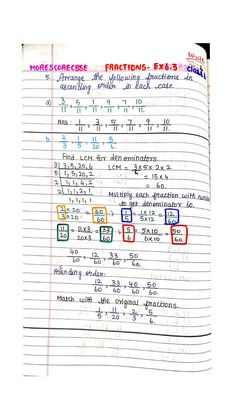 MORESCORECBSE FRACTIONS- EX 6.3
class 6
5. Arrange the following fractions in
ascending order in each case
a) 3/11, 5/11, 1/11, 9/11, 7/11, 10/11
Ans - 1/11, 3/11, 5/11, 7/11, 9/11, 10/11
b) 2/3, 1/5, 11/20, 5/6
Find LCM for denominators
3 | 3, 5, 20, 6 LCM = 3x5x2x2
5 | 1, 5, 20, 2 = 15x4
2 | 1, 1, 4, 2 = 60.
2 | 1, 1, 2, 1 Multiply each fraction with
1, 1, 1, 1 to get denominator 60.
2 x 20 / 3 x 20 = 40/60 , 1/5 = 1x12 / 5x12 = 12/60
11/20 = 11x3 / 20x3 = 33/60 ; 5/6 = 5x10 / 6x10 = 50/60.
40/60, 12/60, 33/60, 50/60
Ascending order:
12/60, 33/60, 40/60, 50/60.
Match with the original fractions.
1/5, 11/20, 2/3, 5/6.